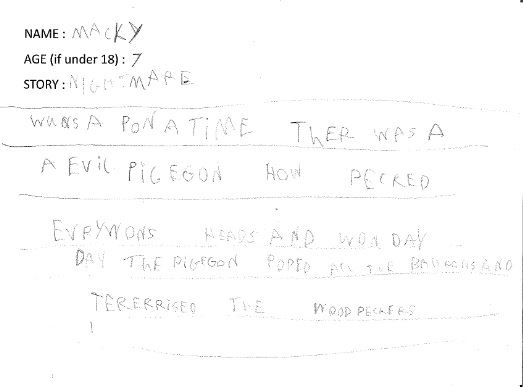 NAME : MACKY
AGE (if under 18) : 7
STORY : NIGHTMARE
WUNS A PON A TIME THER WAS A
A EVIL PIGEGON HOW PECKED
EVRYWONS HEADS AND WON DAY
DAY THE PIGEGON POPED ALL THE BALLOONS AND
TERERRISED THE WOODPECKERS
!